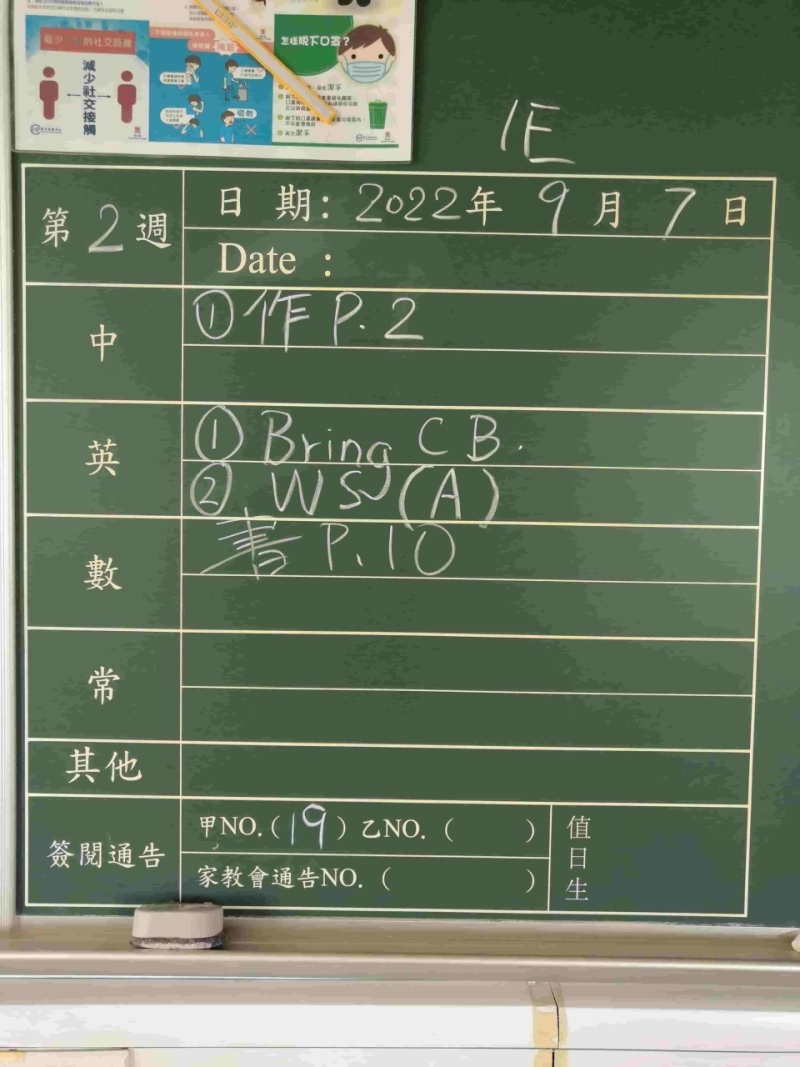 減少社交接觸
怎樣脫下口罩?
1E
第2週
日 期: 2022年 9月 7日
Date :
中
①作 P.2
英
① Bring CB.
② WS (A)
數
書 P.10
常
其他
簽閱通告
甲NO.(19) 乙NO.( )
家教會通告NO.( )
值日生